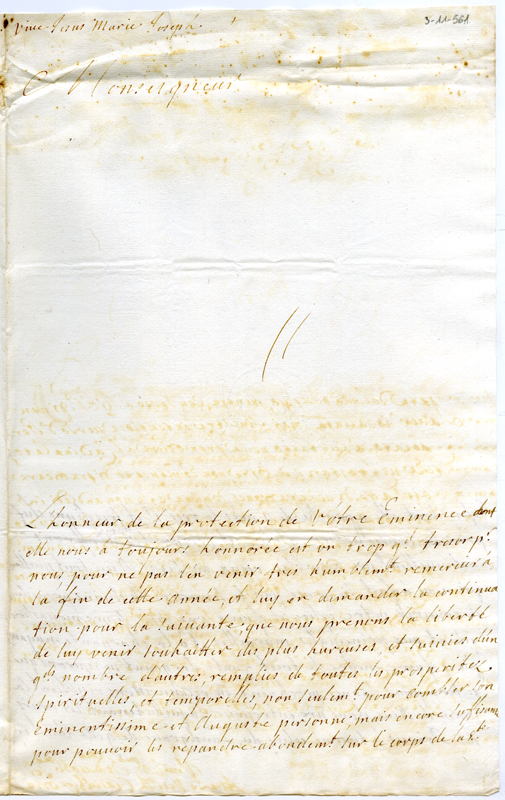 Vive Jesus Marie Joseph
3-11-561
Monseigneur
L'honneur de la protection de Votre Eminence dont
elle nous à toujours honnorée est un trop gd tresor pr
nous pour ne pas l'en venir tres humblemt remercier à
la fin de cette année, et luy en demander la continua
tion pour la suivante, que nous prenons la liberté
de luy venir souhaitter des plus hureuses, et suivies d'un
gd nombre d'autres, remplies de toutes les prosperitez
spirituelles, et temporelles, non seulemt pour combler son
Eminentissime et Auguste personne, mais encore suffisante
pour pouvoir les répandre abondemt sur le corps de la